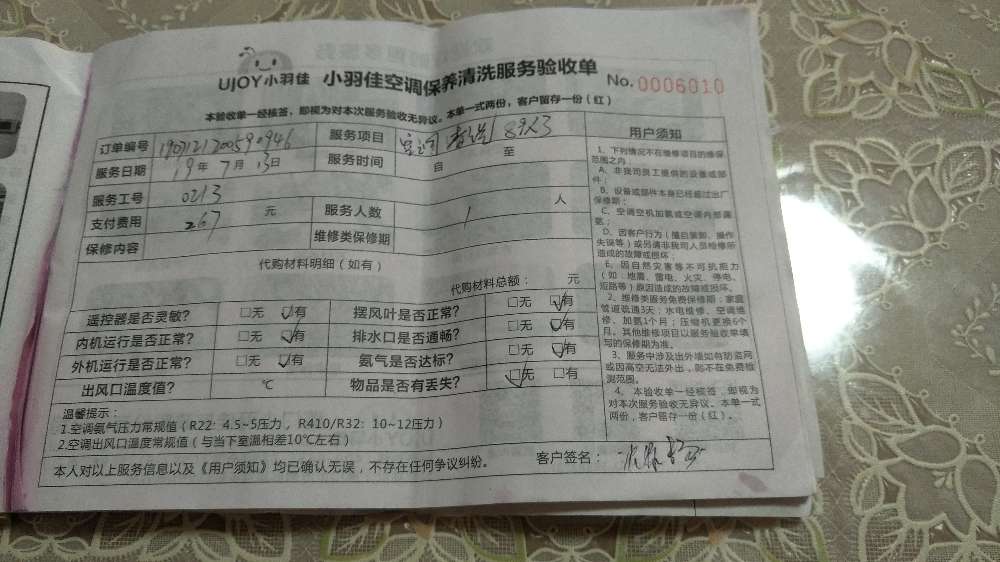 UJOY小羽佳 小羽佳空调保养清洗服务验收单 No.0006010
本验收单一经核签，即视为对本次服务验收无异议。本单一式两份，客户留存一份（红）
订单编号 1907121200590946 服务项目 空调清洗 89X3
服务日期 19年7月13日 服务时间 自 至
服务工号 0213
支付费用 267 元 服务人数 1 人
保修内容 维修类保修期
代购材料明细（如有）
代购材料总额： 元
遥控器是否灵敏? □无 ☑有 摆风叶是否正常? □无 ☑有
内机运行是否正常? □无 ☑有 排水口是否通畅? □无 ☑有
外机运行是否正常? □无 ☑有 氨气是否达标? □无 ☑有
出风口温度值? ℃ 物品是否有丢失? ☑无 □有
温馨提示：
1.空调氨气压力常规值（R22: 4.5~5压力，R410/R32: 10~12压力）
2.空调出风口温度常规值（与当下室温相差10℃左右）
本人对以上服务信息以及《用户须知》均已确认无误，不存在任何争议纠纷。 客户签名：
用户须知
1、下列情况不在维修项目的维保
范围之内：
A、非我司员工提供的设备或部
件；
B、设备或部件本身已经超过出厂
保修期；
C、空调空机加氨或空调内部漏
氨；
D、因客户行为（擅自装卸、操作
失误等）或另请非我司人员检修所
造成的故障或损坏；
E、因自然灾害等不可抗拒力
（如：地震、雷电、火灾、停电、
短路等）原因造成的故障或损坏。
2、维修类服务免费保修期：家庭
管道疏通3天；水电维修、空调维
修、加氨1个月；压缩机更换6个
月。其他维修项目以服务验收单填
写的保修期为准。
3、服务中涉及出外墙如有防盗网
或因高空无法外出，则不在免费检
测范围。
4、本验收单一经核签，即视为
对本次服务验收无异议。本单一式
两份，客户留存一份（红）。